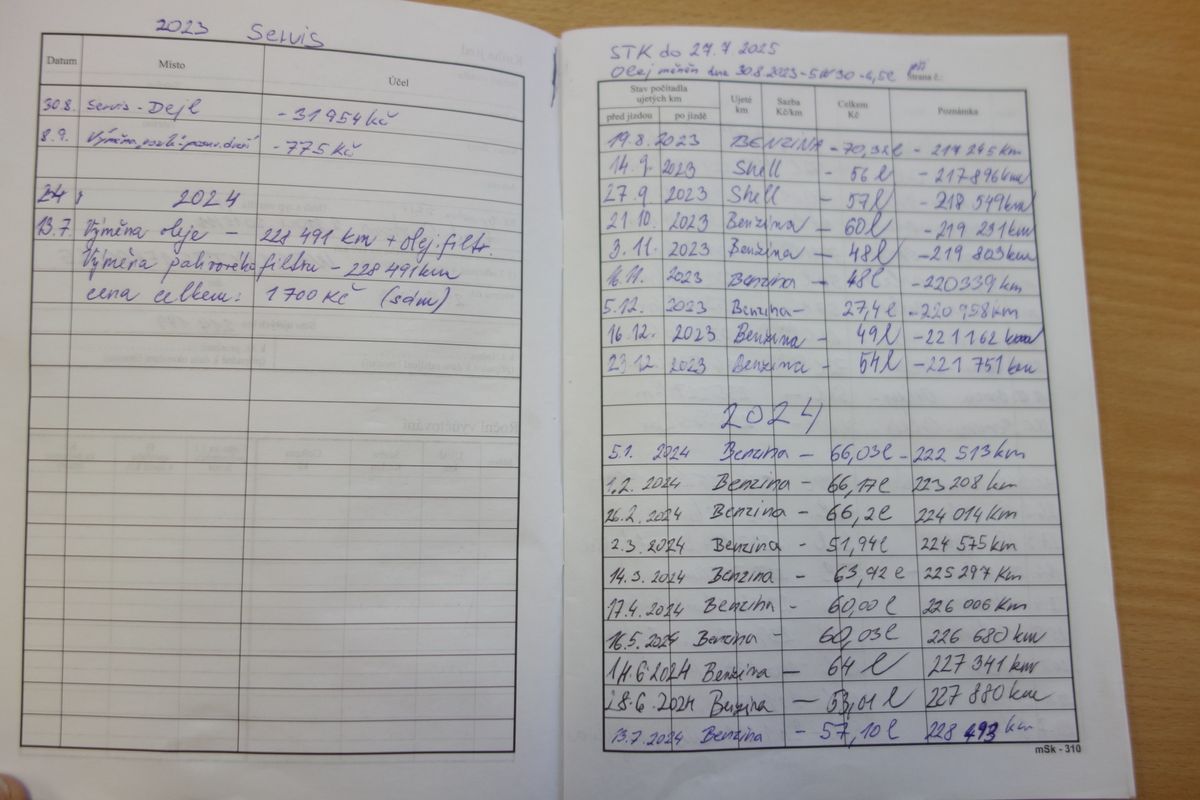 2023 Servis
Datum Místo Účel
30.8. Servis - Dejl - 31 954 Kč
8.9. Výměna - 775 Kč
24. 2024
13.7. Výměna oleje - 228 491 km + olej. filtr.
Výměna palivového filtru - 228 491 km
cena celkem: 1 700 Kč (sám)
STK do 27.7 2025
Olej měněn dne 30.8.2023 - 5W30 - 6,5l
Strana č.:
Stav počítadla ujetých km Ujeté km Sazba Kč/km Celkem Kč Poznámka
před jízdou po jízdě
19.8.2023 BENZINA - 70,32l - 217 245 km
14.9. 2023 Shell - 56 l - 217 896 km
27.9 2023 Shell - 57 l - 218 549 km
21.10. 2023 Benzina - 60 l - 219 231 km
3.11. 2023 Benzina - 48 l - 219 803 km
16.11. 2023 Benzina - 48l - 220339 km
5.12. 2023 Benzina - 27,4 l - 220 958 km
16.12. 2023 Benzina - 49 l - 221 162 km
23.12 2023 Benzina - 54 l - 221 751 km
2024
5.1. 2024 Benzina - 66,03 l - 222 513 km
1.2. 2024 Benzina - 66,17 l 223 208 km
26.2. 2024 Benzina - 66,2 l 224 014 km
2.3. 2024 Benzina - 51,94 l 224 575 km
14.3. 2024 Benzina - 63,92 l 225 297 km
17.4. 2024 Benzina - 60,00 l 226 006 km
16.5. 2024 Benzina - 60,03 l 226 680 km
14.6 2024 Benzina - 64 l 227 341 km
28.6. 2024 Benzina - 53,01 l 227 880 km
13.7.2024 Benzina - 57,10 l 228 493 km
mSk - 310